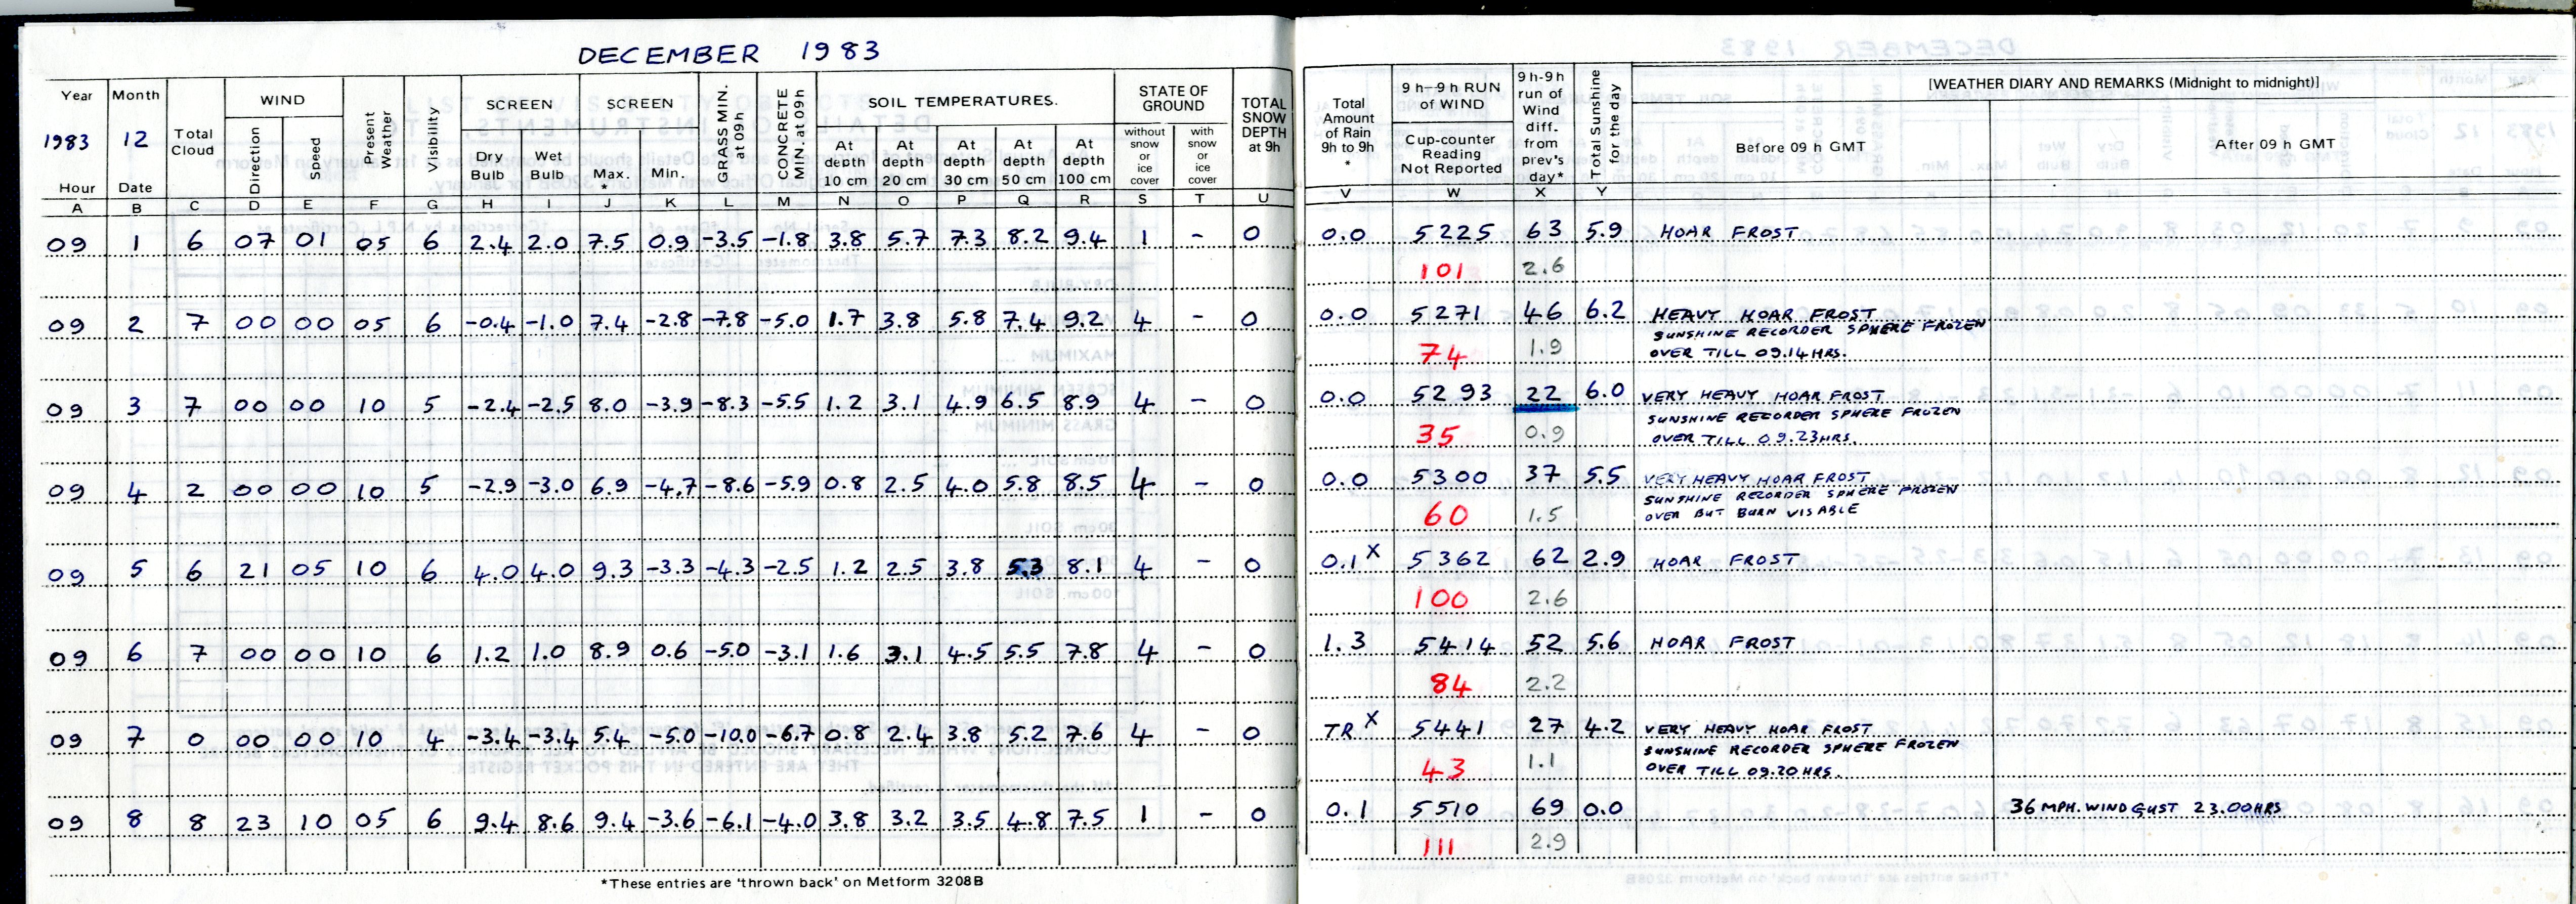 DECEMBER 1983
Year Month Total Cloud WIND Present Weather Visibility SCREEN SCREEN GRASS MIN. at 09h CONCRETE MIN. at 09h SOIL TEMPERATURES. STATE OF GROUND TOTAL SNOW DEPTH at 9h Total Amount of Rain 9h to 9h * 9h–9h RUN of WIND 9h-9h run of Wind diff. from prev's day* Total Sunshine for the day [WEATHER DIARY AND REMARKS (Midnight to midnight)]
1983 12 Direction Speed Dry Bulb Wet Bulb Max. * Min. At depth 10 cm At depth 20 cm At depth 30 cm At depth 50 cm At depth 100 cm without snow or ice cover with snow or ice cover Cup-counter Reading Not Reported Before 09 h GMT After 09 h GMT
Hour Date
A B C D E F G H I J K L M N O P Q R S T U V W X Y
09 1 6 07 01 05 6 2.4 2.0 7.5 0.9 -3.5 -1.8 3.8 5.7 7.3 8.2 9.4 1 - 0 0.0 5225 63 5.9 HOAR FROST
101 2.6
09 2 7 00 00 05 6 -0.4 -1.0 7.4 -2.8 -7.8 -5.0 1.7 3.8 5.8 7.4 9.2 4 - 0 0.0 5271 46 6.2 HEAVY HOAR FROST
SUNSHINE RECORDER SPHERE FROZEN
74 1.9 OVER TILL 09.14HRS.
09 3 7 00 00 10 5 -2.4 -2.5 8.0 -3.9 -8.3 -5.5 1.2 3.1 4.9 6.5 8.9 4 - 0 0.0 5293 22 6.0 VERY HEAVY HOAR FROST
SUNSHINE RECORDER SPHERE FROZEN
35 0.9 OVER TILL 09.23HRS.
09 4 2 00 00 10 5 -2.9 -3.0 6.9 -4.7 -8.6 -5.9 0.8 2.5 4.0 5.8 8.5 4 - 0 0.0 5300 37 5.5 VERY HEAVY HOAR FROST
SUNSHINE RECORDER SPHERE FROZEN
60 1.5 OVER BUT BURN VISABLE
09 5 6 21 05 10 6 4.0 4.0 9.3 -3.3 -4.3 -2.5 1.2 2.5 3.8 5.3 8.1 4 - 0 0.1 X 5362 62 2.9 HOAR FROST
100 2.6
09 6 7 00 00 10 6 1.2 1.0 8.9 0.6 -5.0 -3.1 1.6 3.1 4.5 5.5 7.8 4 - 0 1.3 5414 52 5.6 HOAR FROST
84 2.2
09 7 0 00 00 10 4 -3.4 -3.4 5.4 -5.0 -10.0 -6.7 0.8 2.4 3.8 5.2 7.6 4 - 0 TR X 5441 27 4.2 VERY HEAVY HOAR FROST
SUNSHINE RECORDER SPHERE FROZEN
43 1.1 OVER TILL 09.20HRS.
09 8 8 23 10 05 6 9.4 8.6 9.4 -3.6 -6.1 -4.0 3.8 3.2 3.5 4.8 7.5 1 - 0 0.1 5510 69 0.0 36 MPH. WIND GUST 23.00HRS
111 2.9
*These entries are 'thrown back' on Metform 3208B